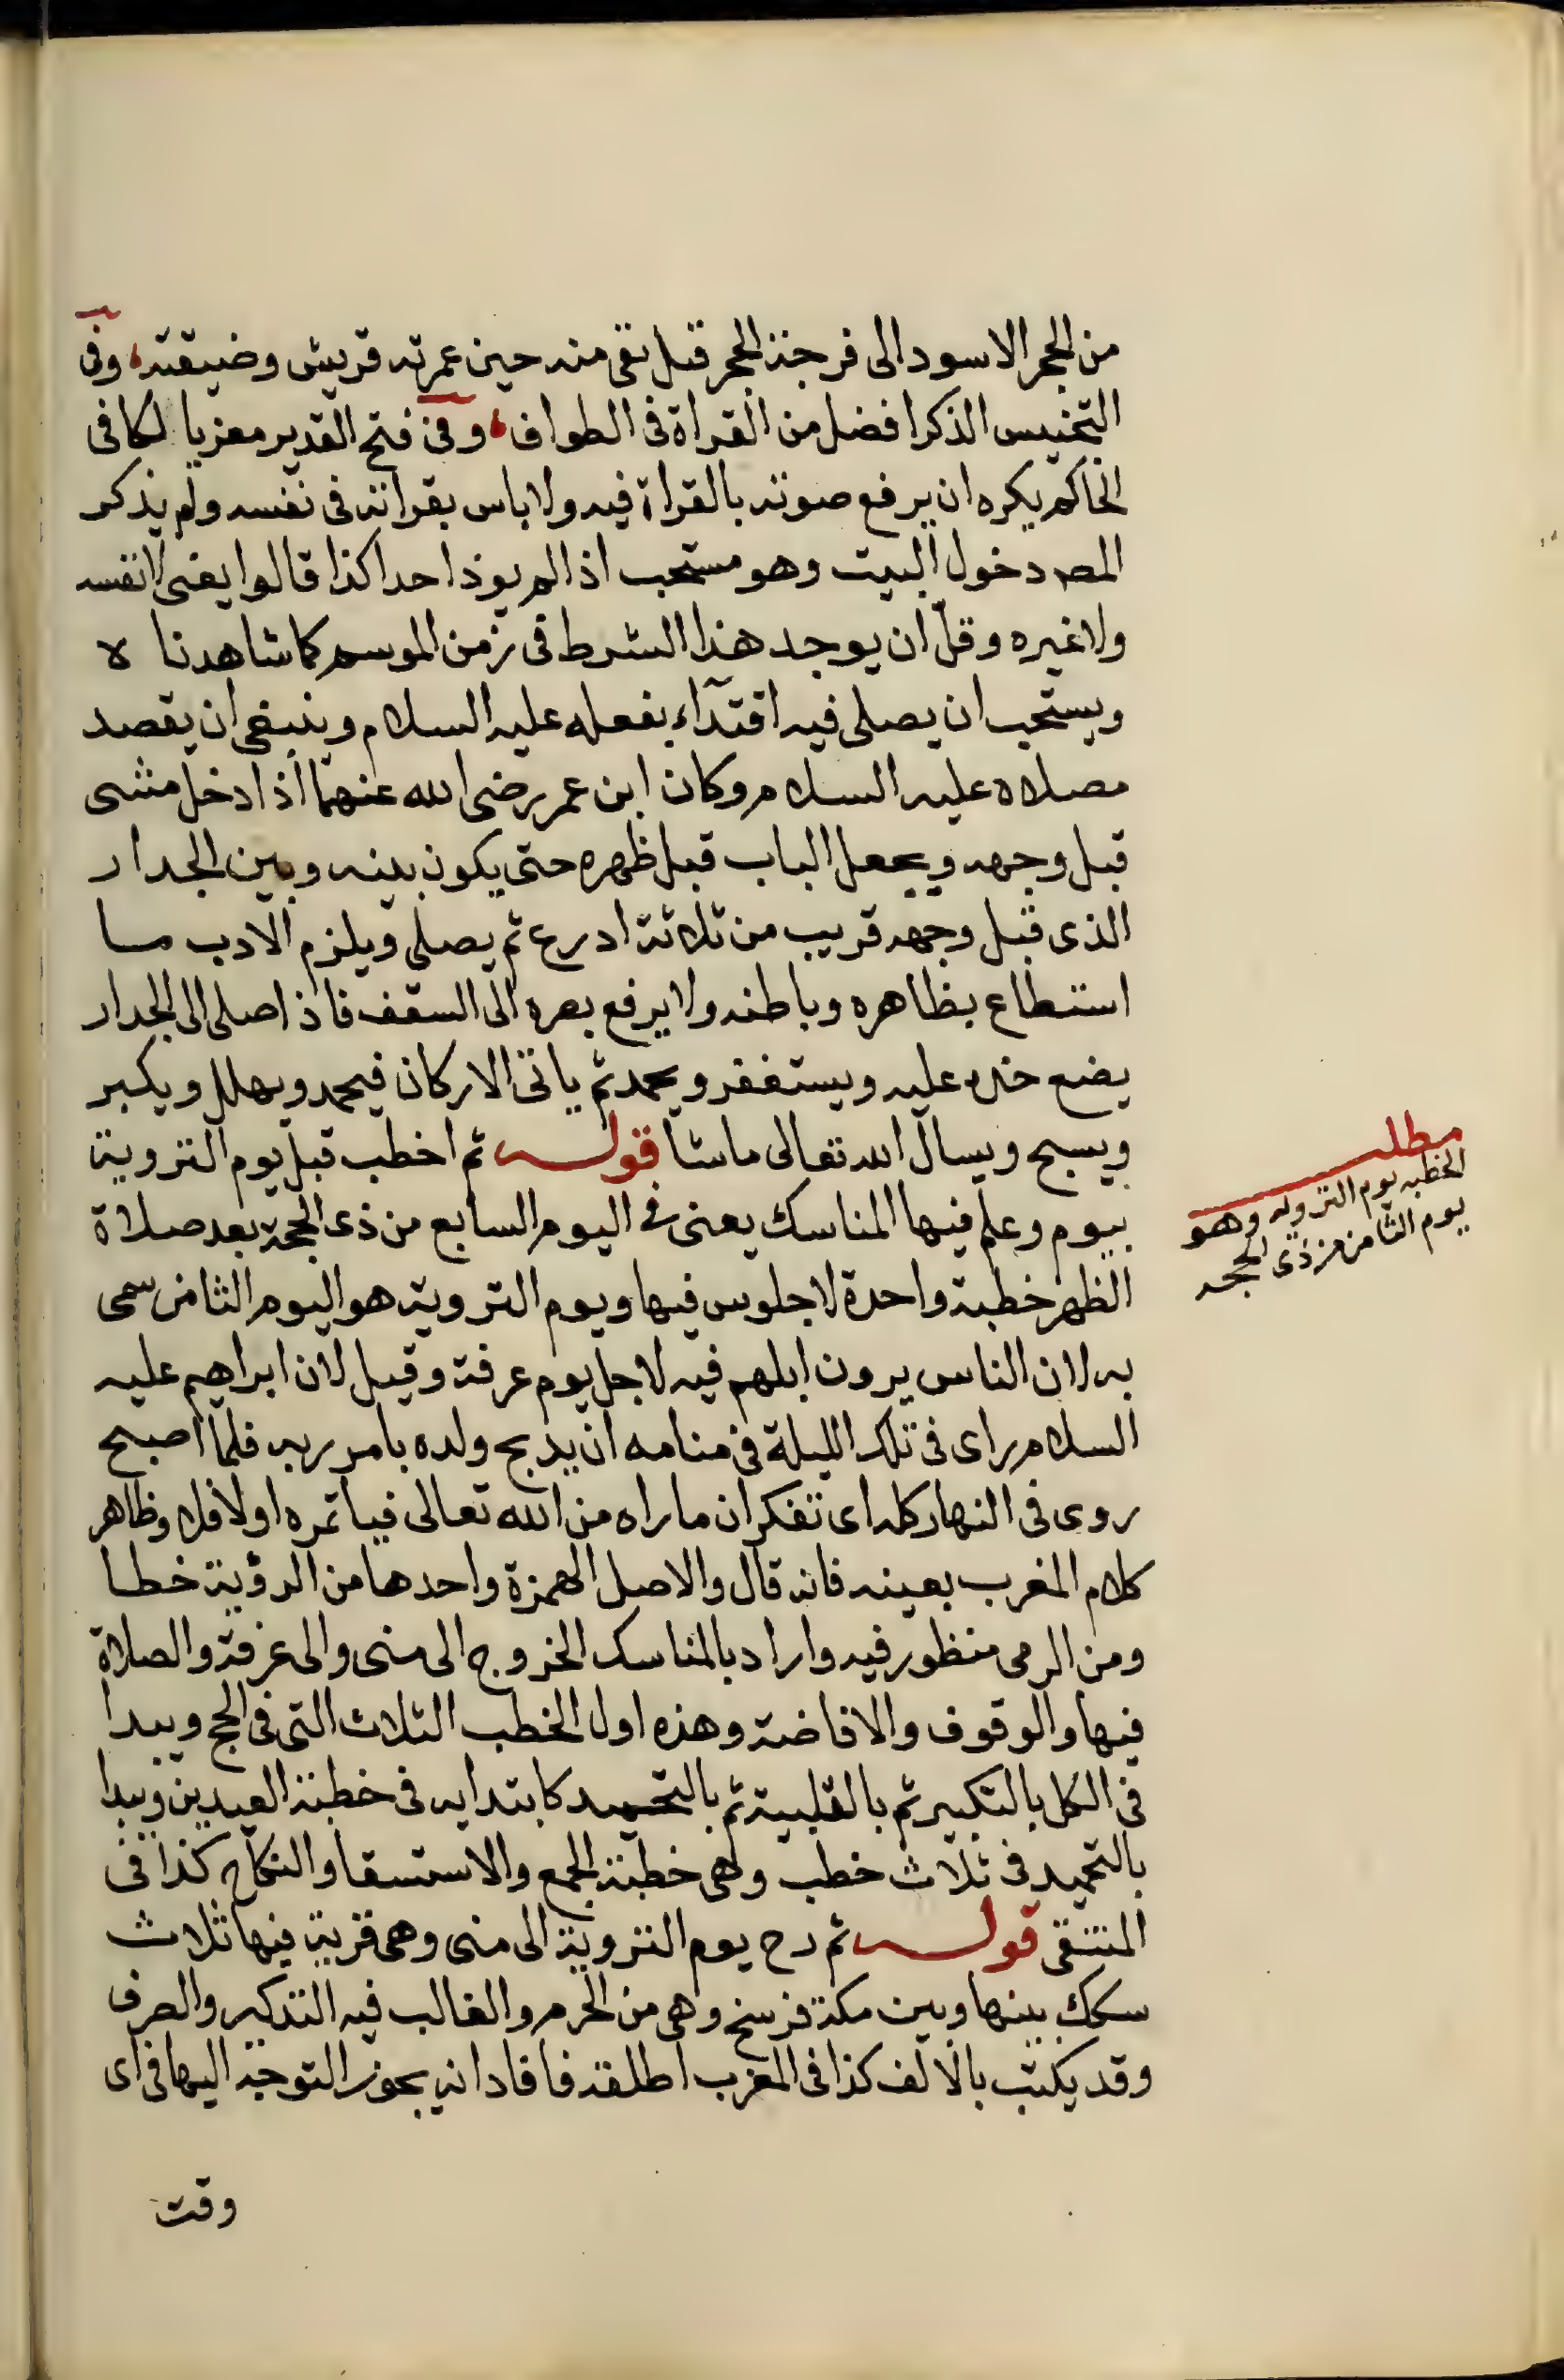 من الحجر الاسود الى فرجة الحجر قيل بقى منه حين عمرته قريش وضيقته، وفى
التجنيس الذكر افضل من القراة فى الطواف، وفى فتح القدير معزيا لكافى
الحاكم يكره ان يرفع صوته بالقراة فيه ولا باس بقراته فى نفسه ولم يذكر
المص دخول البيت وهو مستحب اذا لم يوذ احدا كذا قالوا يعنى لا نفسه
ولا غيره وقلّ ان يوجد هذا الشرط فى زمن الموسم كما شاهدناه
ويستحب ان يصلى فيه اقتدآء بفعله عليه السلام وينبغى ان يقصد
مصلاه عليه السلام وكان ابن عمر رضى الله عنهما اذا دخل مشى
قبل وجهه ويجعل الباب قبل ظهره حتى يكون بينه وبين الجدار
الذى قبل وجهه قريب من ثلاثة ادرع ثم يصلى ويلزم الادب ما
استطاع بظاهره وباطنه ولا يرفع بصره الى السقف فاذا صلى الى الجدار
يضع خده عليه ويستغفر ويحمد ثم ياتى الاركان فيحمد ويهلل ويكبر
ويسبح ويسال الله تعالى ما شا قوله ثم اخطب قبل يوم التروية
بيوم وعلم فيها المناسك يعنى فى اليوم السابع من ذى الحجة بعد صلاة
الظهر خطبة واحدة لا جلوس فيها ويوم التروية هو اليوم الثامن سمى
به لان الناس يروون ابلهم فيه لاجل يوم عرفة وقيل لان ابراهيم عليه
السلام راى فى تلك الليلة فى منامه ان يذبح ولده بامر ربه فلما اصبح
روى فى النهار كله اى تفكر ان ما راه من الله تعالى فياتمره اولا فلا وظاهر
كلام المغرب بعينه فانه قال والاصل الهمزة واحدها من الرؤية خطا
ومن الرمى منظور فيه واراد بالمناسك الخروج الى منى والى عرفة والصلاة
فيها والوقوف والافاضة وهذه اول الخطب الثلاث التى فى الحج ويبدا
فى الكل بالتكبير ثم بالتلبية ثم بالتحميد كابتدايه فى خطبة العيدين ويبدا
بالتحميد فى ثلاث خطب وهى خطبة الجمع والاستسقا والنكاح كذا فى
المنتقى قوله ثم رح يوم التروية الى منى وهى قرية فيها ثلاث
سكك بينها وبين مكة فرسخ وهى من الحرم والغالب فيه التذكير والصرف
وقد يكتب بالالف كذا فى المغرب اطلقه فافاد انه يجوز التوجه اليها فى اى
وقت
مطلب
الخطبه يوم الترويه وهو
يوم الثامن من ذى الحجه